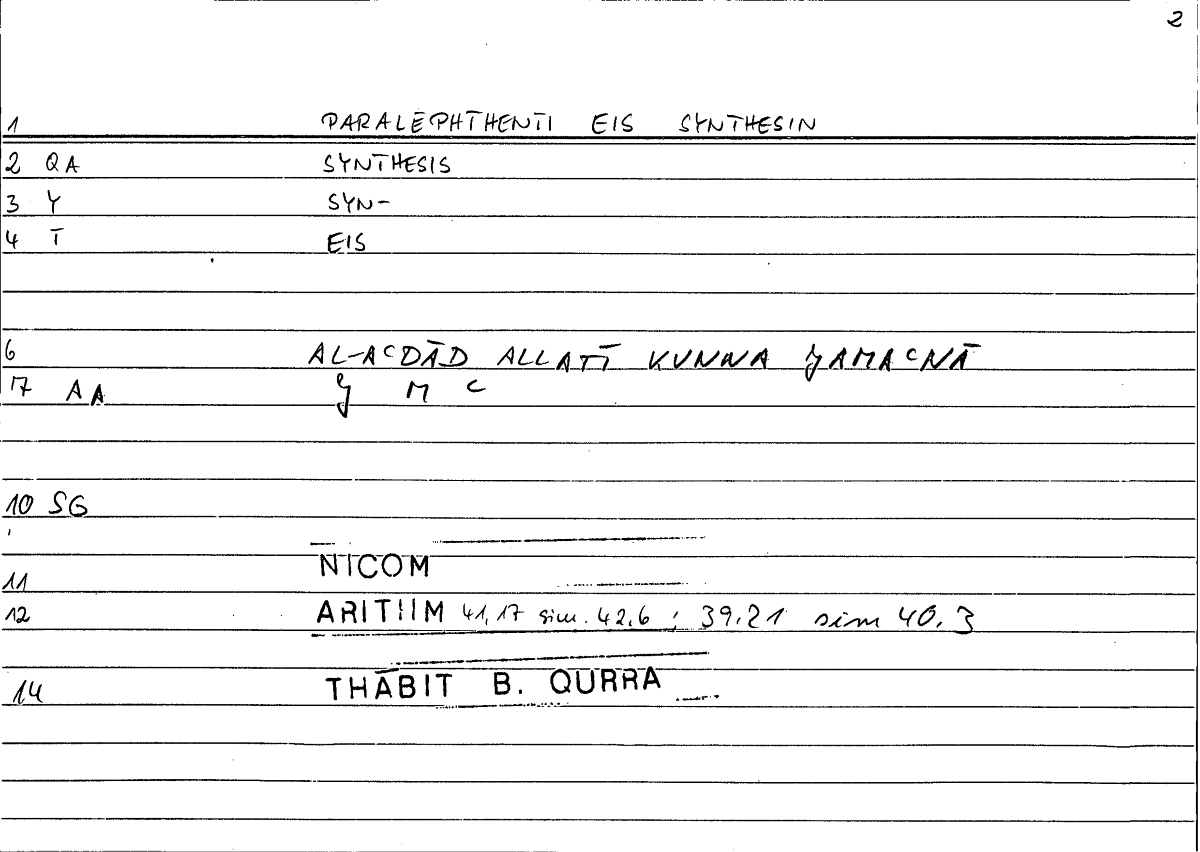 2
1 PARALĒPHTHENTI EIS SYNTHESIN
2 QA SYNTHESIS
3 Y SYN-
4 T EIS
6 AL-AʿDĀD ALLATĪ KUNNA ǦAMAʿNĀ
17 AA Ǧ M ʿ
10 SG
11 NICOM
12 ARITHM 41,17 sim. 42.6 ; 39.21 sim 40.3
14 THĀBIT B. QURRA